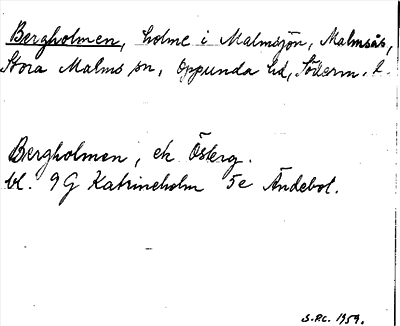 Bergholmen, holme i Malmsjön, Malmsås,
Stora Malms sn, Oppunda hd, Söderm. l.
Bergholmen, ek Österg.
bl. 9G Katrineholm 5e Ändebol.
S.P.C. 1959.